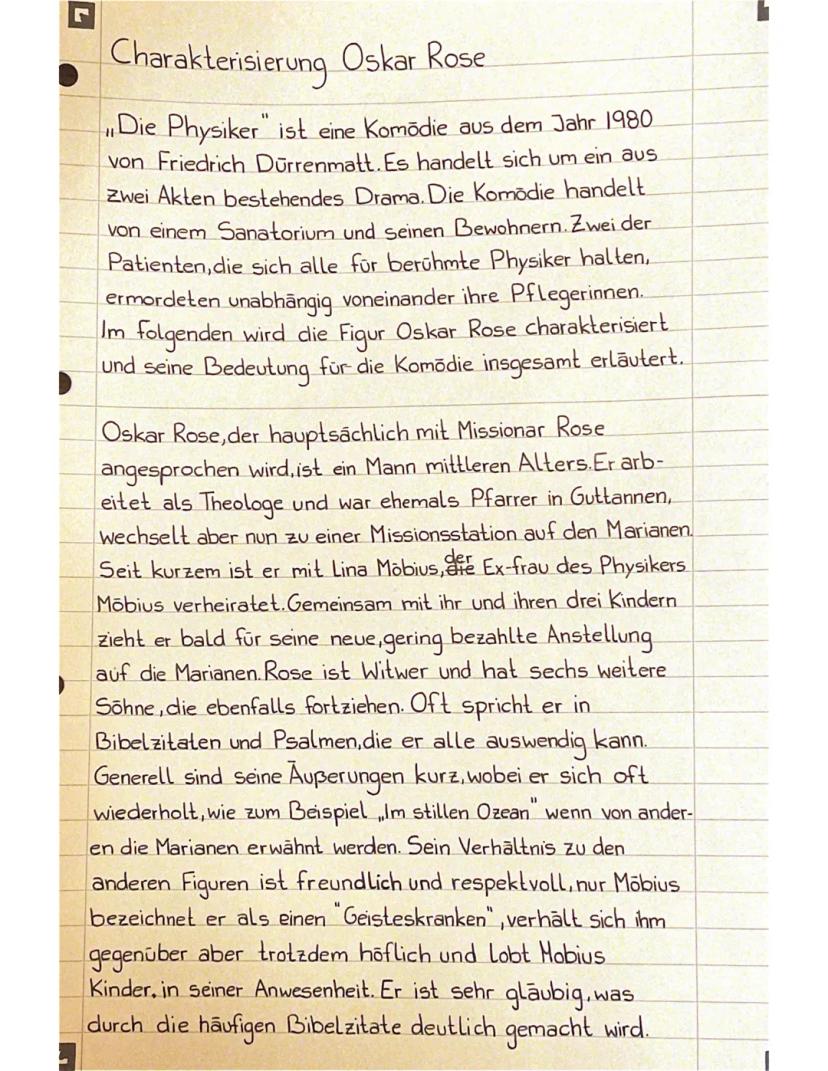 Charakterisierung Oskar Rose
„Die Physiker" ist eine Komödie aus dem Jahr 1980
von Friedrich Dürrenmatt. Es handelt sich um ein aus
zwei Akten bestehendes Drama. Die Komödie handelt
von einem Sanatorium und seinen Bewohnern. Zwei der
Patienten, die sich alle für berühmte Physiker halten,
ermordeten unabhängig voneinander ihre Pflegerinnen.
Im folgenden wird die Figur Oskar Rose charakterisiert
und seine Bedeutung für die Komödie insgesamt erläutert.
Oskar Rose, der hauptsächlich mit Missionar Rose
angesprochen wird, ist ein Mann mittleren Alters. Er arb-
eitet als Theologe und war ehemals Pfarrer in Guttannen,
wechselt aber nun zu einer Missionsstation auf den Marianen.
Seit kurzem ist er mit Lina Möbius, der Ex-frau des Physikers
Möbius verheiratet. Gemeinsam mit ihr und ihren drei Kindern
zieht er bald für seine neue, gering bezahlte Anstellung
auf die Marianen. Rose ist Witwer und hat sechs weitere
Söhne, die ebenfalls fortziehen. Oft spricht er in
Bibelzitaten und Psalmen, die er alle auswendig kann.
Generell sind seine Äußerungen kurz, wobei er sich oft
wiederholt, wie zum Beispiel „Im stillen Ozean" wenn von ander-
en die Marianen erwähnt werden. Sein Verhältnis zu den
anderen Figuren ist freundlich und respektvoll, nur Möbius
bezeichnet er als einen "Geisteskranken", verhält sich ihm
gegenüber aber trotzdem höflich und lobt Mobius
Kinder. in seiner Anwesenheit. Er ist sehr gläubig, was
durch die häufigen Bibelzitate deutlich gemacht wird.